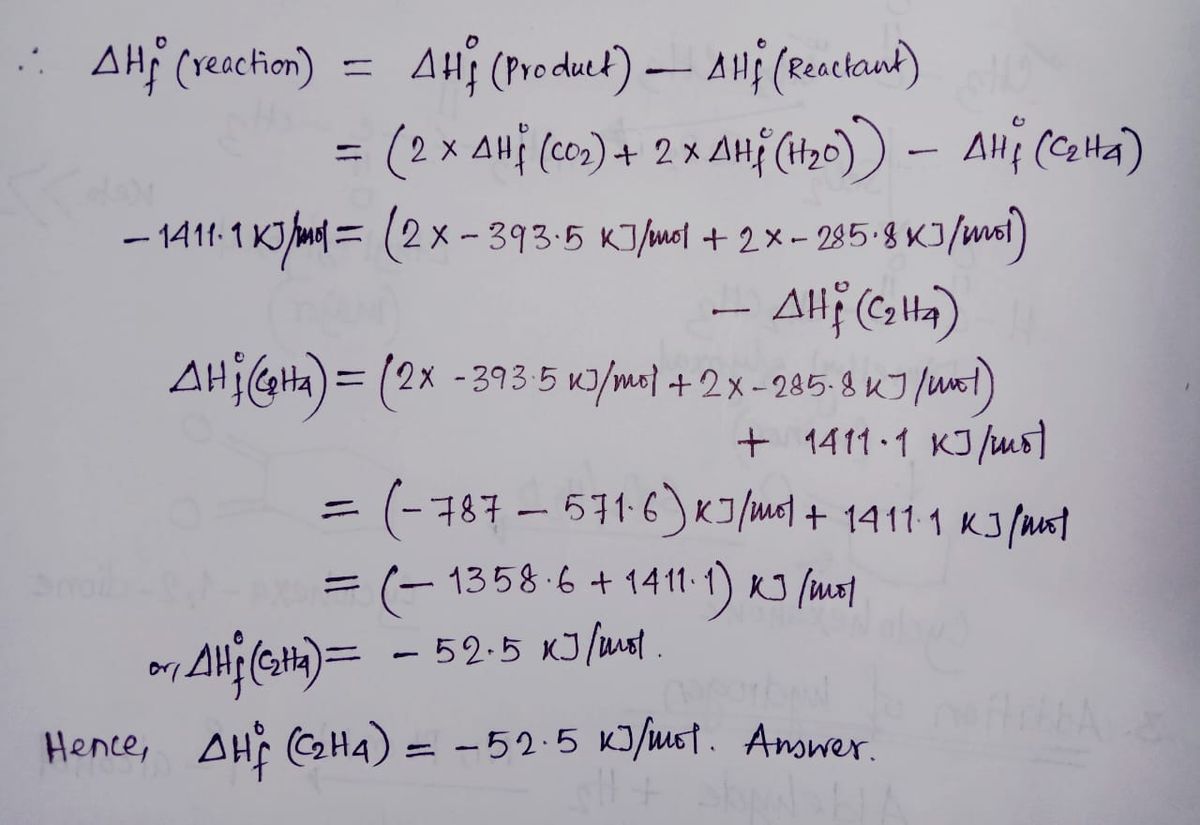 ∴ ΔHf° (reaction) = ΔHf° (Product) – ΔHf° (Reactant)
= (2 x ΔHf° (CO2) + 2 x ΔHf° (H2O)) – ΔHf° (C2H4)
– 1411.1 KJ/mol = (2 x – 393.5 KJ/mol + 2 x – 285.8 KJ/mol)
– ΔHf° (C2H4)
ΔHf° (C2H4) = (2x -393.5 KJ/mol + 2 x – 285.8 KJ/mol)
+ 1411.1 KJ/mol
= (– 787 – 571.6) KJ/mol + 1411.1 KJ/mol
= (– 1358.6 + 1411.1) KJ/mol
or, ΔHf° (C2H4) = – 52.5 KJ/mol.
Hence, ΔHf° (C2H4) = – 52.5 KJ/mol. Answer.